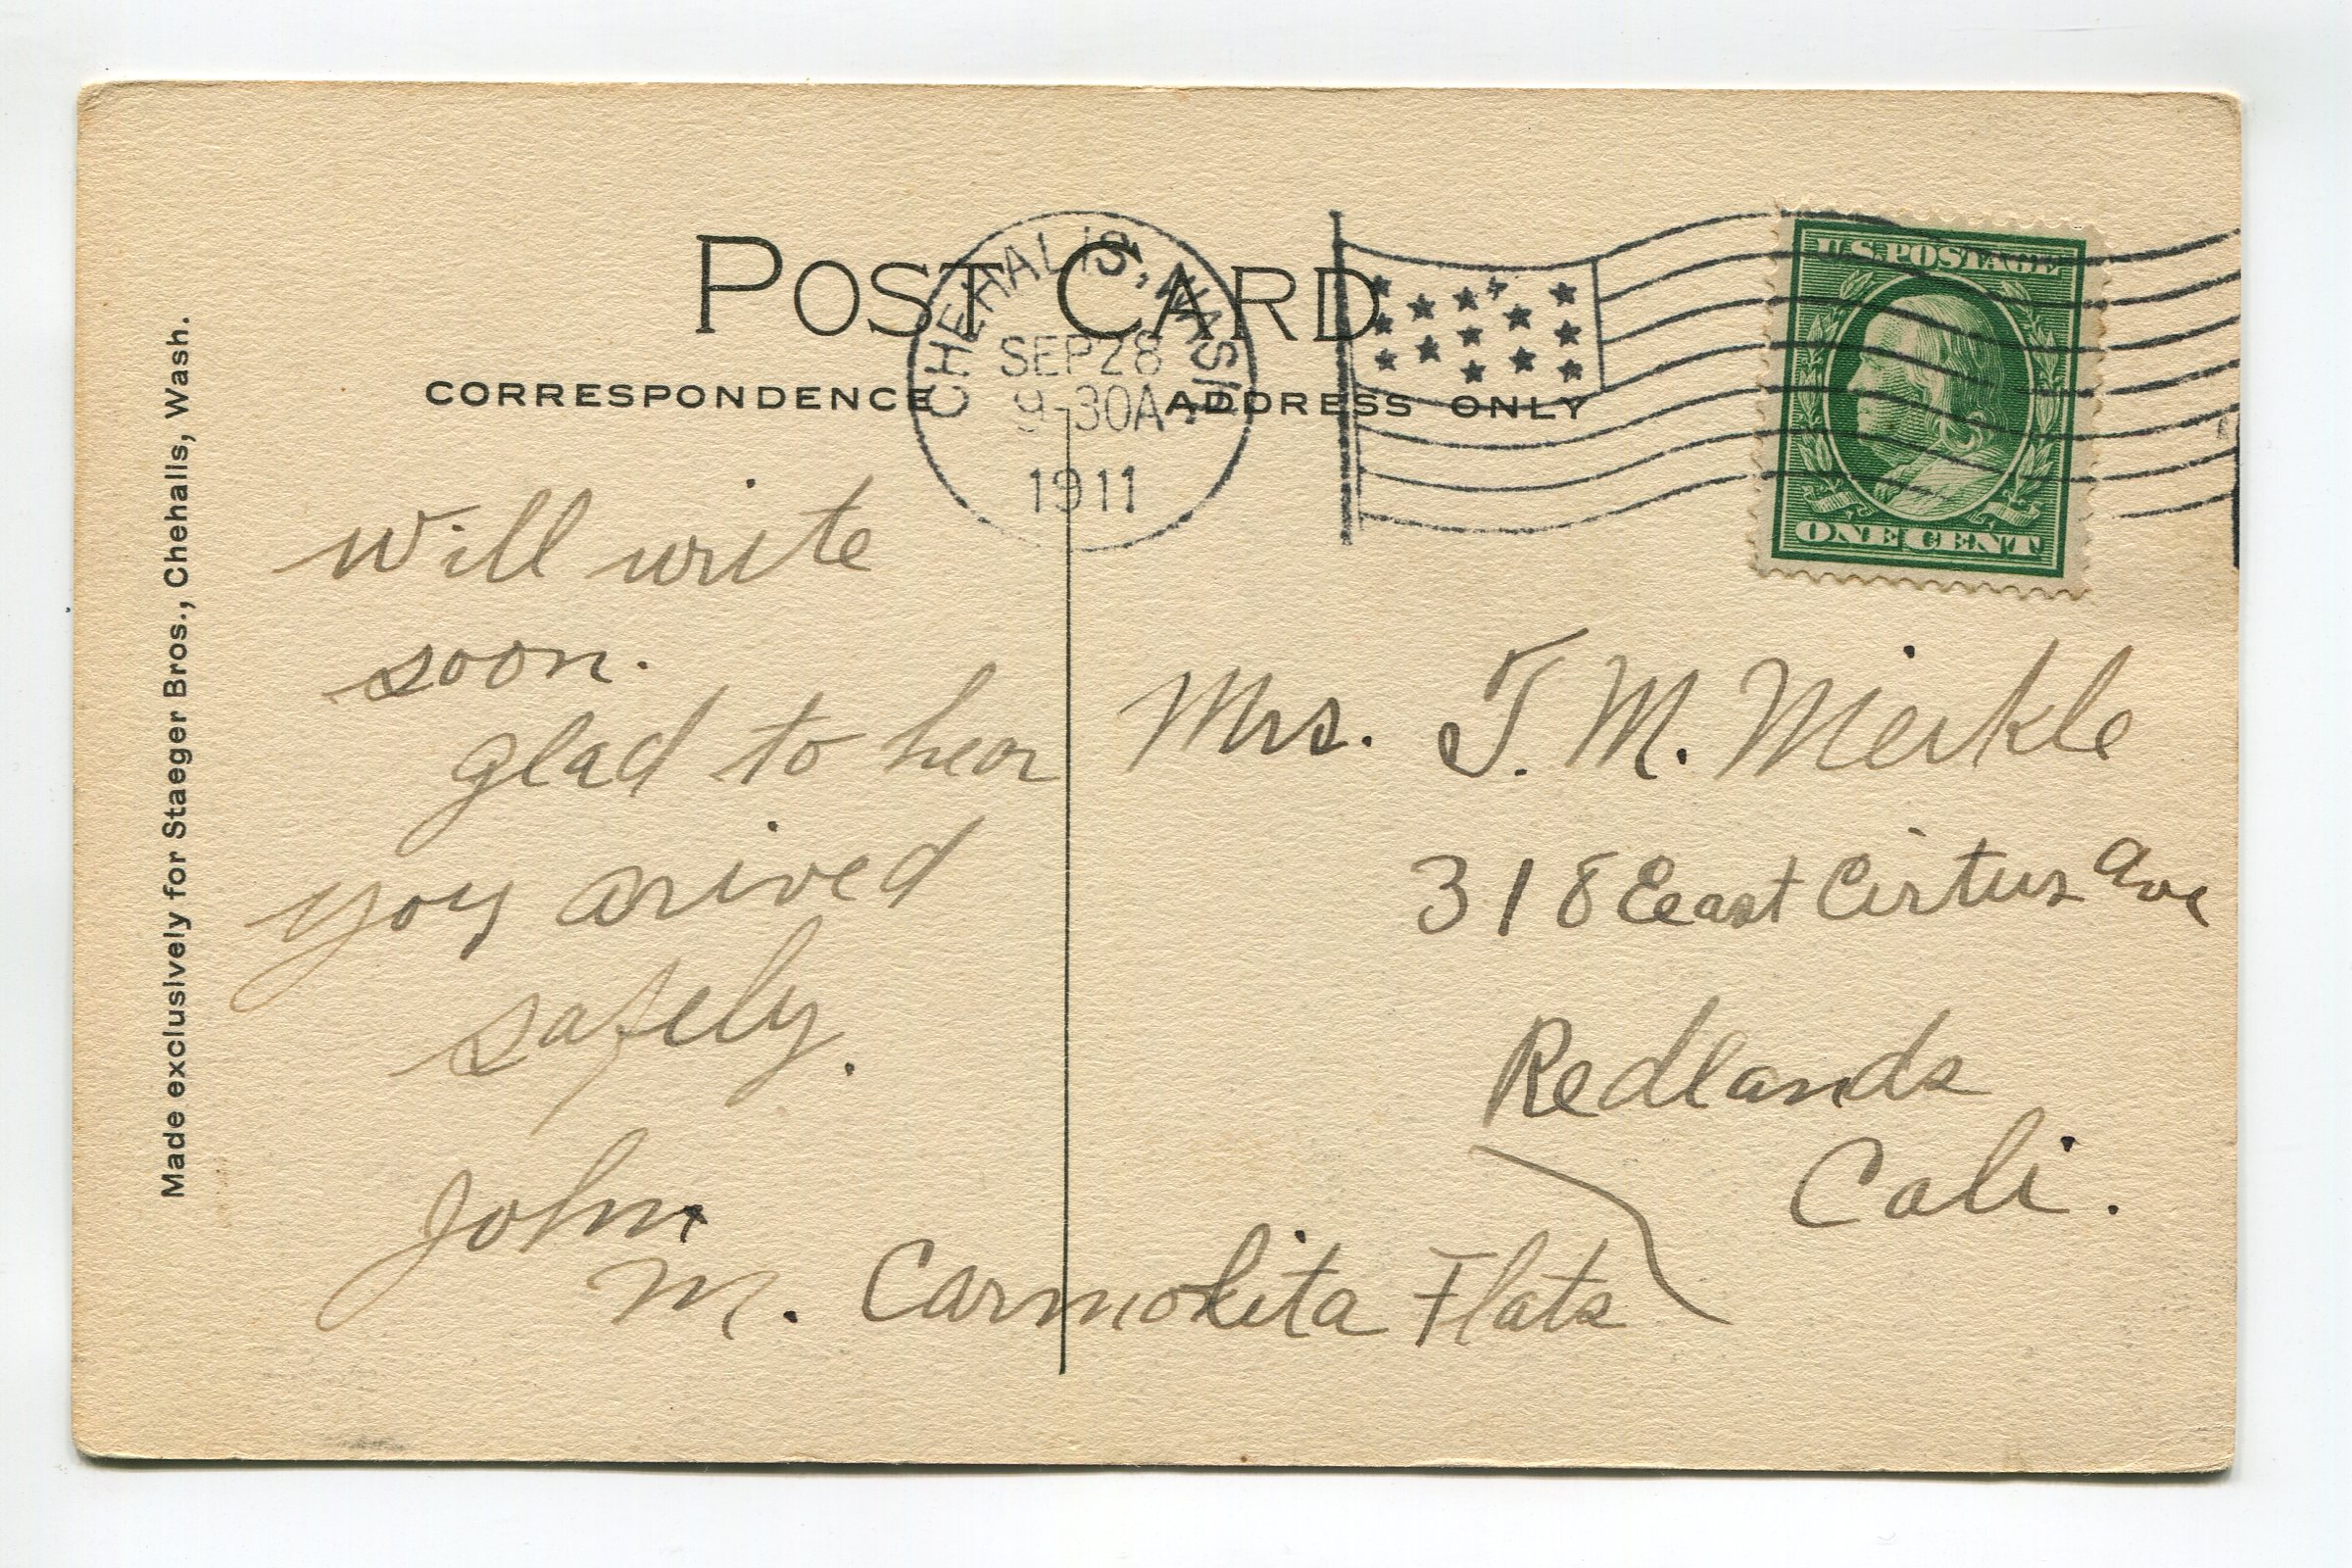 Post Card
CHEHALIS, WASH.
SEP 28
9-30A
1911
CORRESPONDENCE
ADDRESS ONLY
U.S. POSTAGE
ONE CENT
Made exclusively for Staeger Bros., Chehalis, Wash.
will write
soon.
glad to hear
you arived
safely.
John
M.
Mrs. T. M. Meikle
318 Eeast Cirtus Ave
Redlands
Cali.
Carmolita Flats